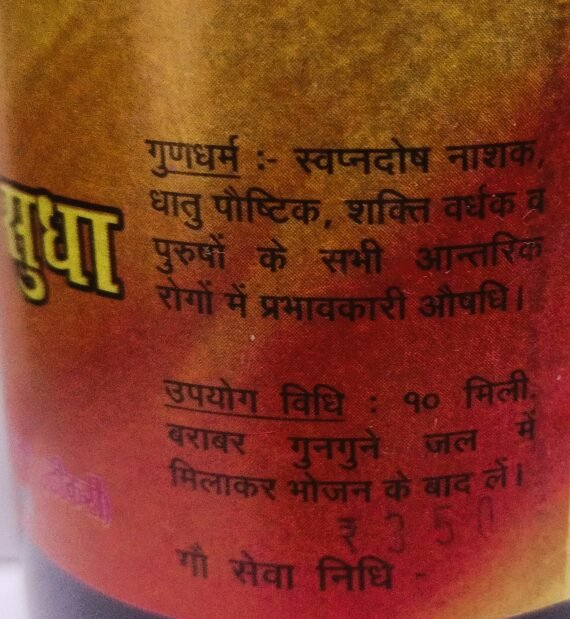 गुणधर्म :- स्वप्नदोष नाशक,
धातु पौष्टिक, शक्ति वर्धक व
पुरुषों के सभी आन्तरिक
रोगों में प्रभावकारी औषधि।
सुधा
उपयोग विधि : १० मिली.
बराबर गुनगुने जल में
मिलाकर भोजन के बाद लें।
₹ 350
गौ सेवा निधि -